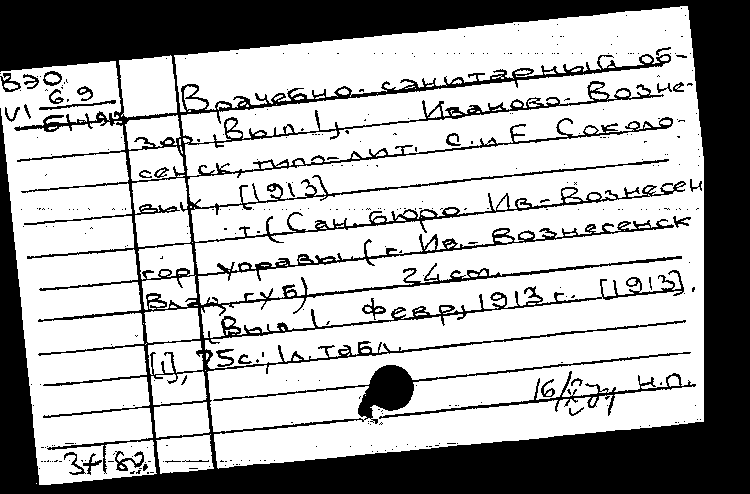 ВЭО
VI 6.9
Врачебно-санитарный об-
зор. [Вып. 1]. Иваново-Возне-
сенск, типо-лит. С. и Е. Соколо-
вых, [1913]
т. (Сан. бюро Ив.-Вознесен
гор. управы (г. Ив.-Вознесенск
Влад. губ) 24 см.
[Вып 1. февр, 1913 г. [1913].
[1], 75с.; 1л. табл.
16/ н.п.